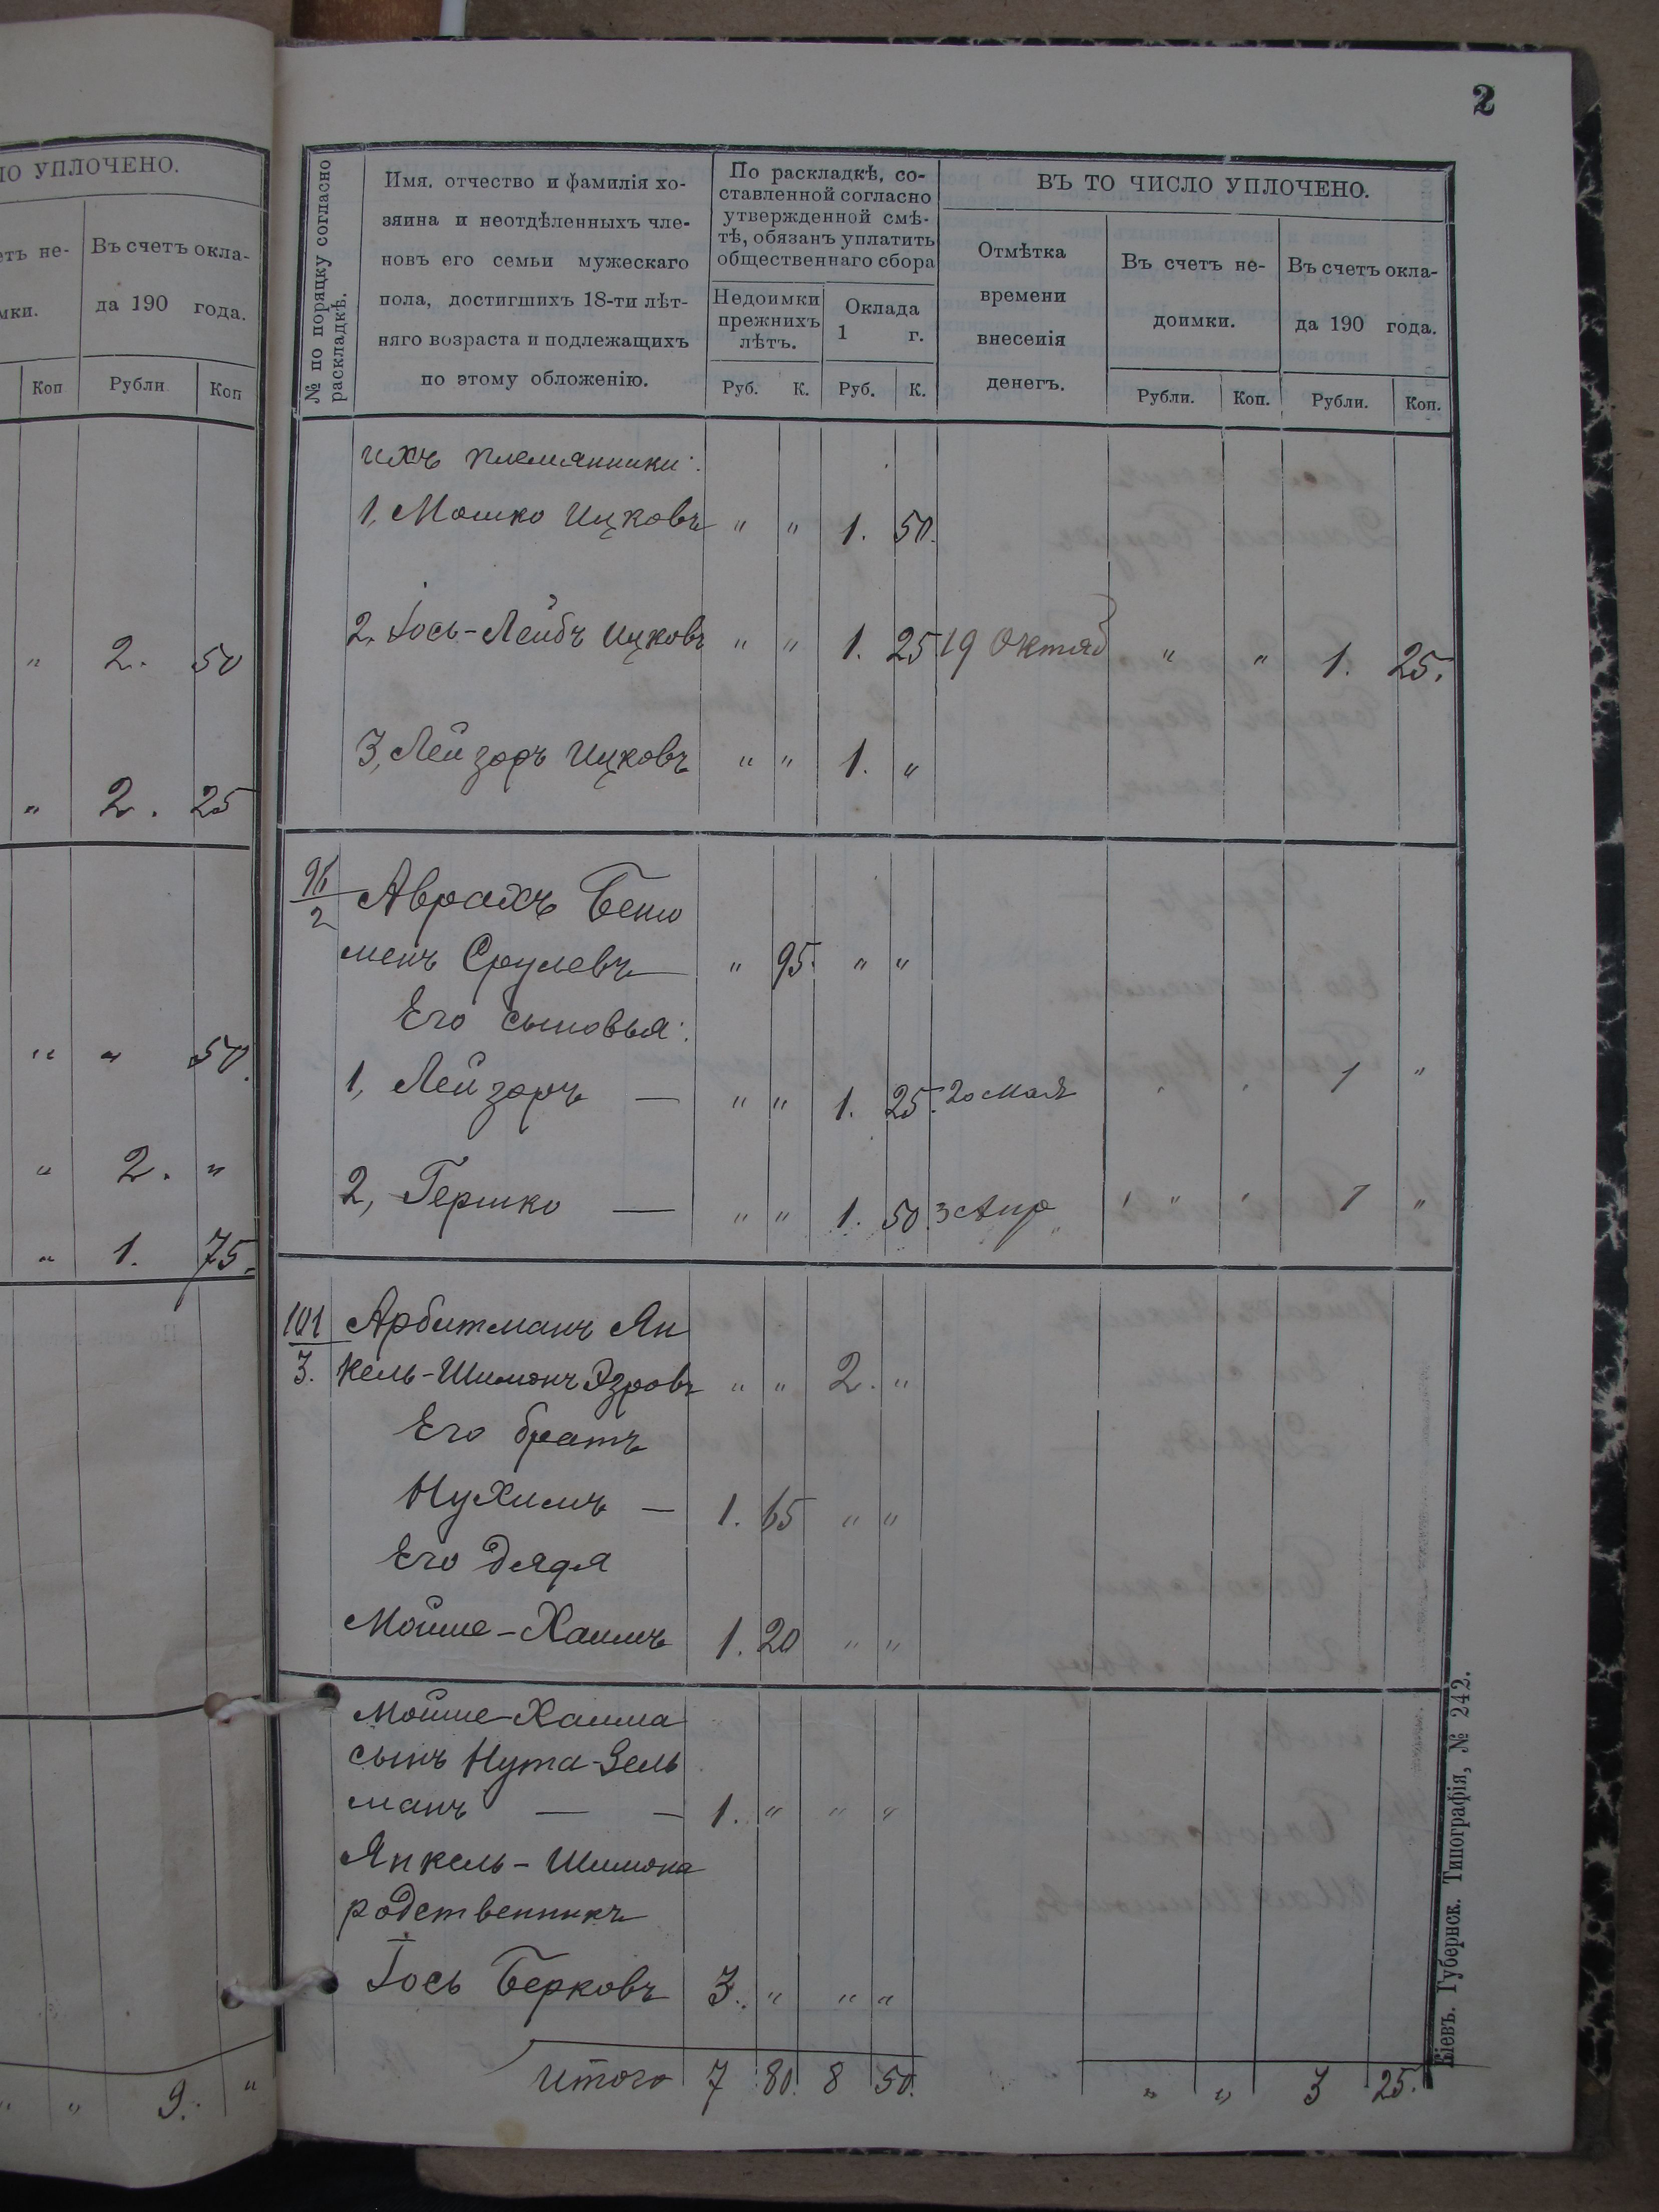 2
ІО УПЛОЧЕНО.
етъ не-
мки.
Въ счетъ окла-
да 190 года.
Коп
Рубли
Коп
" 2. 50
" 2. 25
" " 50.
" 2. "
" 1. 75.
" " 9. "
№ по поряцку согласно
раскладкѣ.
Имя, отчество и фамилія хо-
зяина и неотдѣленныхъ чле-
новъ его семьи мужескаго
пола, достигшихъ 18-ти лѣт-
няго возраста и подлежащихъ
по этому обложенію.
По раскладкѣ, со-
ставленной согласно
утвержденной смѣ-
тѣ, обязанъ уплатить
общественнаго сбора
Недоимки
прежнихъ
лѣтъ.
Оклада
1 г.
Руб. К. Руб. К.
ВЪ ТО ЧИСЛО УПЛОЧЕНО.
Отмѣтка
времени
внесенія
денегъ.
Въ счетъ не-
доимки.
Въ счетъ окла-
да 190 года.
Рубли. Коп. Рубли. Коп.
ихъ племянники:
1, Мошко Ицковъ " " 1. 50.
2, Іось-Лейбъ Ицковъ " " 1. 25 19 Октяб " " 1. 25.
3, Лейзоръ Ицковъ " " 1. "
96/2 Аврахъ Бень
менъ Срулевъ " 95. " "
Его сыновья:
1, Лейзоръ — " " 1. 25. 20 Мая " " 1 "
2, Гершко — " " 1. 50. 3 Апр " " 1 "
101/3. Арбитманъ Ян
кель-Шимонъ Эзровъ " " 2. "
Его братъ
Нухимъ — 1. 65 " "
Его дядя
Мойше-Хаимъ 1. 20 " "
Мойше-Хаима
сынъ Нута-Зель
манъ — — 1. " " "
Янкель-Шимона
родственникъ
Іось Берковъ 3. " " "
Итого 7 80. 8 50. " " 3 25.
Кіевъ. Губернск. Типографія, № 242.